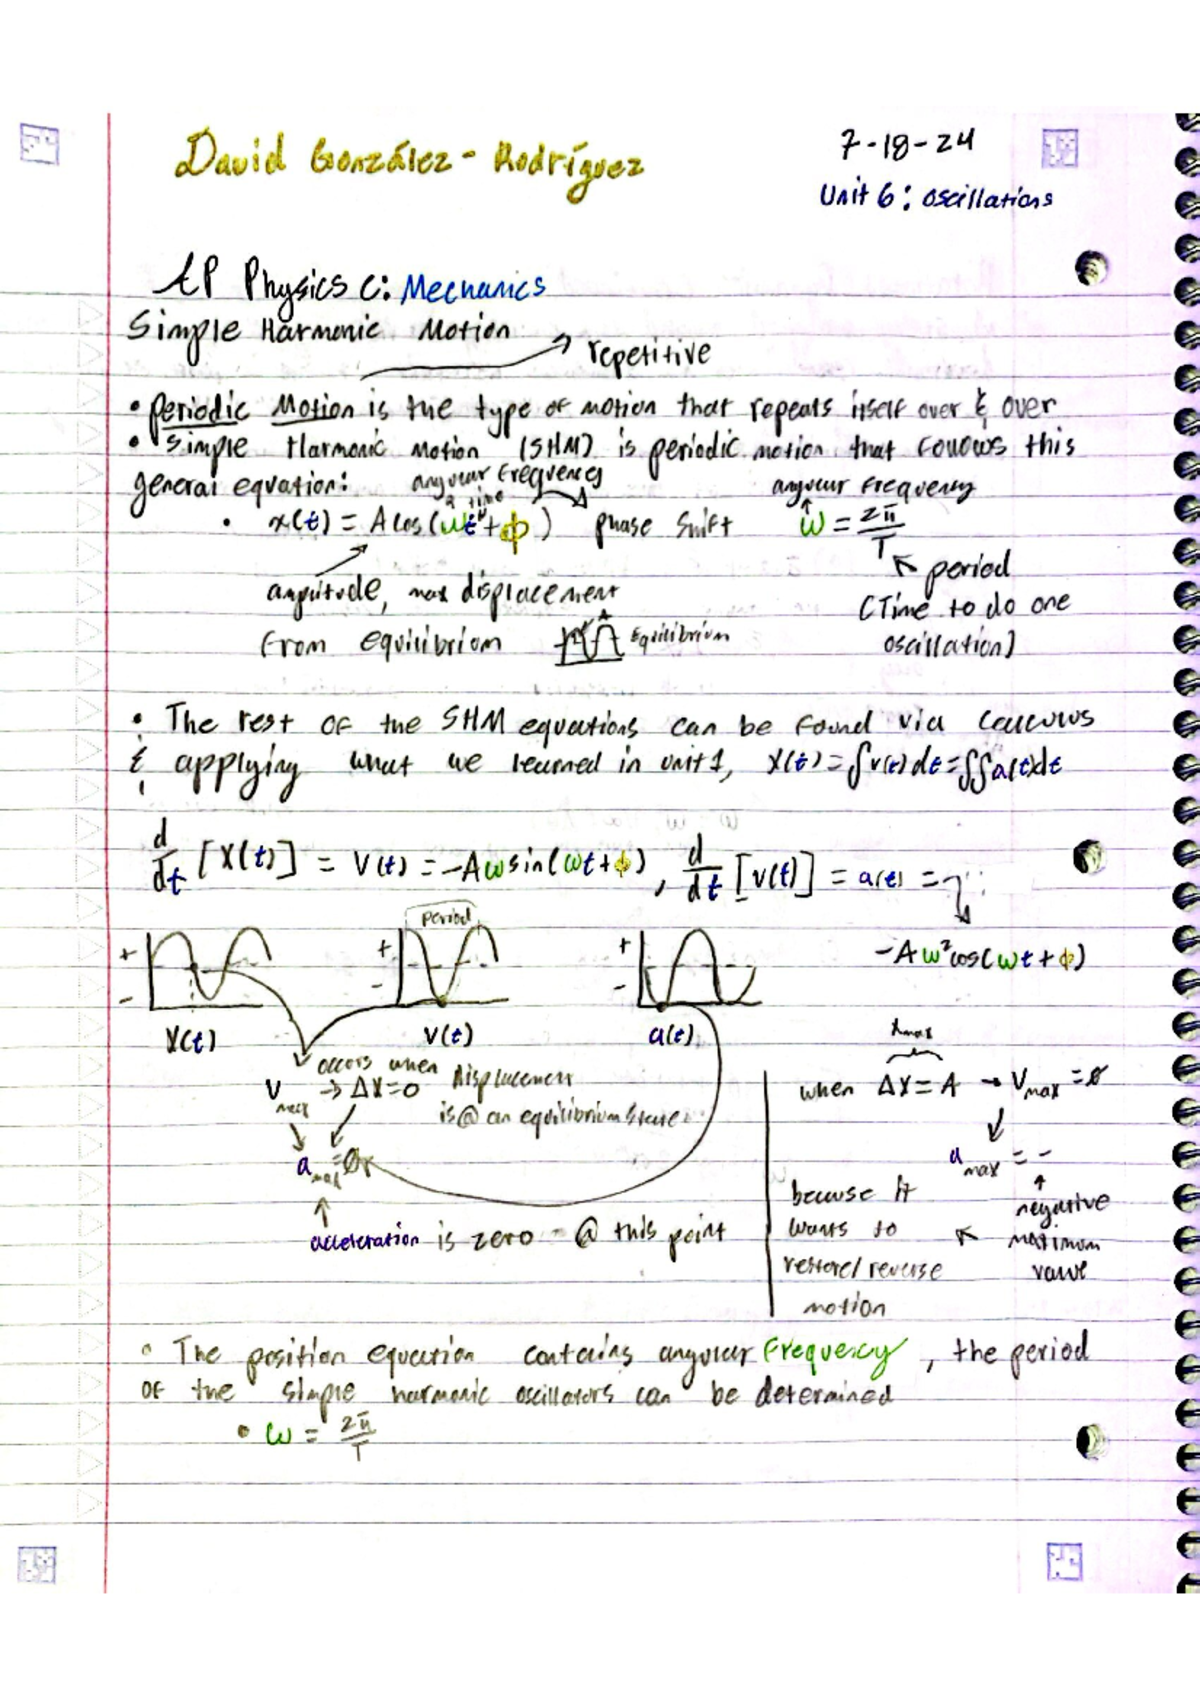 David González-Rodríguez
7-18-24
Unit 6: Oscillations
AP Physics C: Mechanics
Simple Harmonic Motion
repetitive
• Periodic Motion is the type of motion that repeats itself over & over
• Simple Harmonic Motion (SHM) is periodic motion that follows this
general equation:
angular frequency
time
angular frequency
• x(t) = A cos(ωt + ϕ) phase shift ω = 2π/T
period
(Time to do one
oscillation)
amplitude, max displacement
from equilibrium
Equilibrium
• The rest of the SHM equations can be found via calculus
& applying what we learned in unit 1, x(t) = ∫v(t)dt = ∫∫a(t)dt
d/dt [x(t)] = v(t) = -Aωsin(ωt+ϕ), d/dt [v(t)] = a(t) =
-Aω²cos(ωt+ϕ)
Period
+ -
+ -
+ -
x(t) v(t) a(t)
V max → ΔX=0
occurs when displacement
is @ an equilibrium state
a max = 0
acceleration is zero @ this point
Xmax
when ΔX = A → Vmax = 0
a max = -
negative
maximum
value
because it
wants to
restore/reverse
motion
• The position equation contains angular Frequency, the period
of the simple harmonic oscillators can be determined
• ω = 2π/T